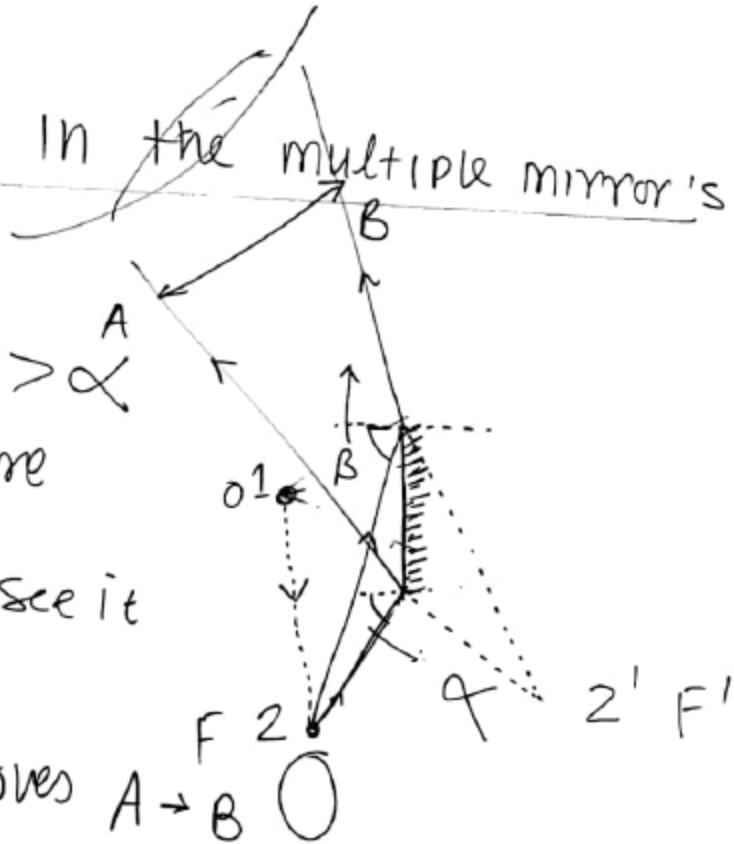 In the multiple mirror's
B
A
> α
re
β
01
see it
α
2' F'
F 2
oves A → B